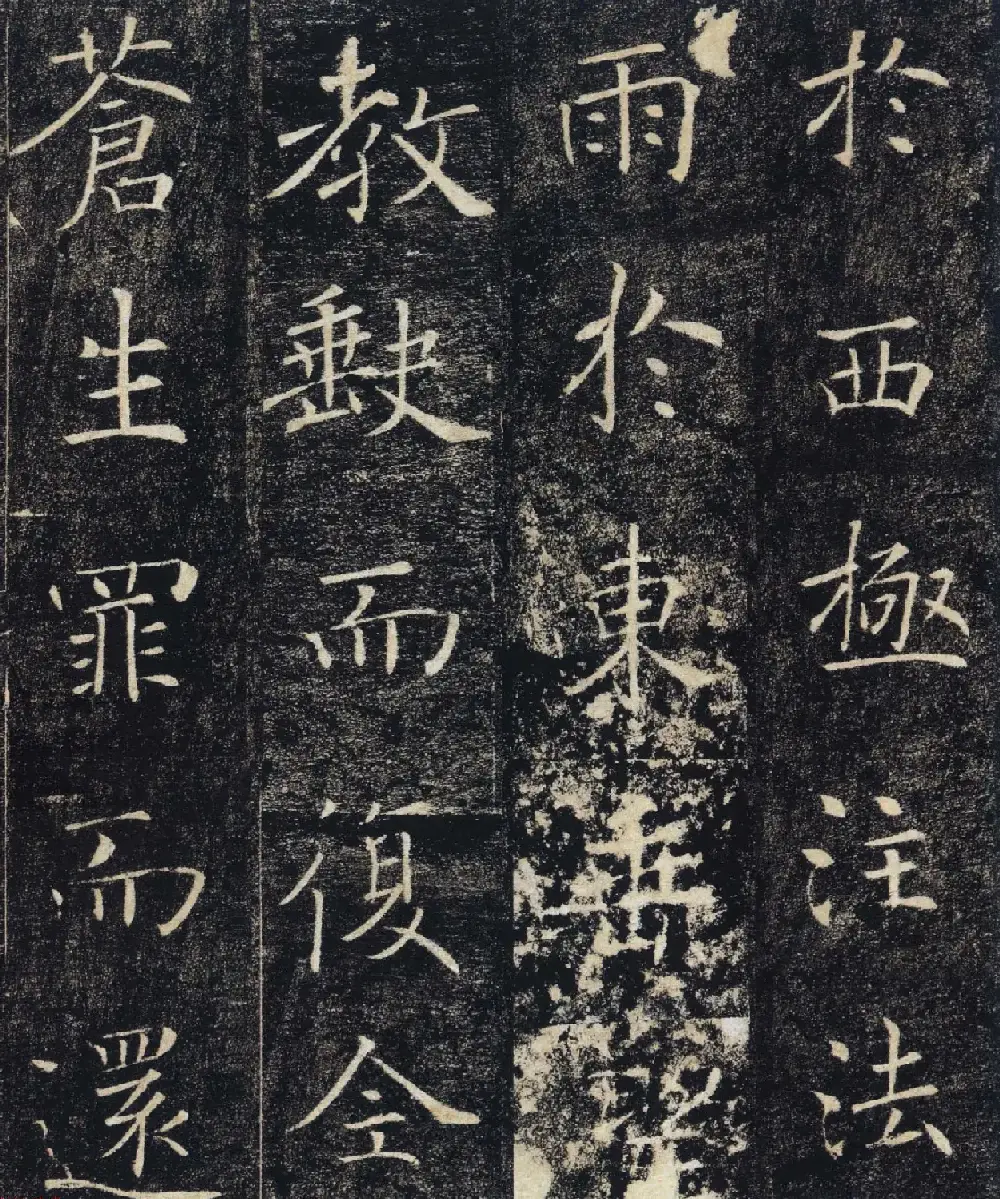 於西極注法
雨於東垂
教缺而復全
蒼生罪而還